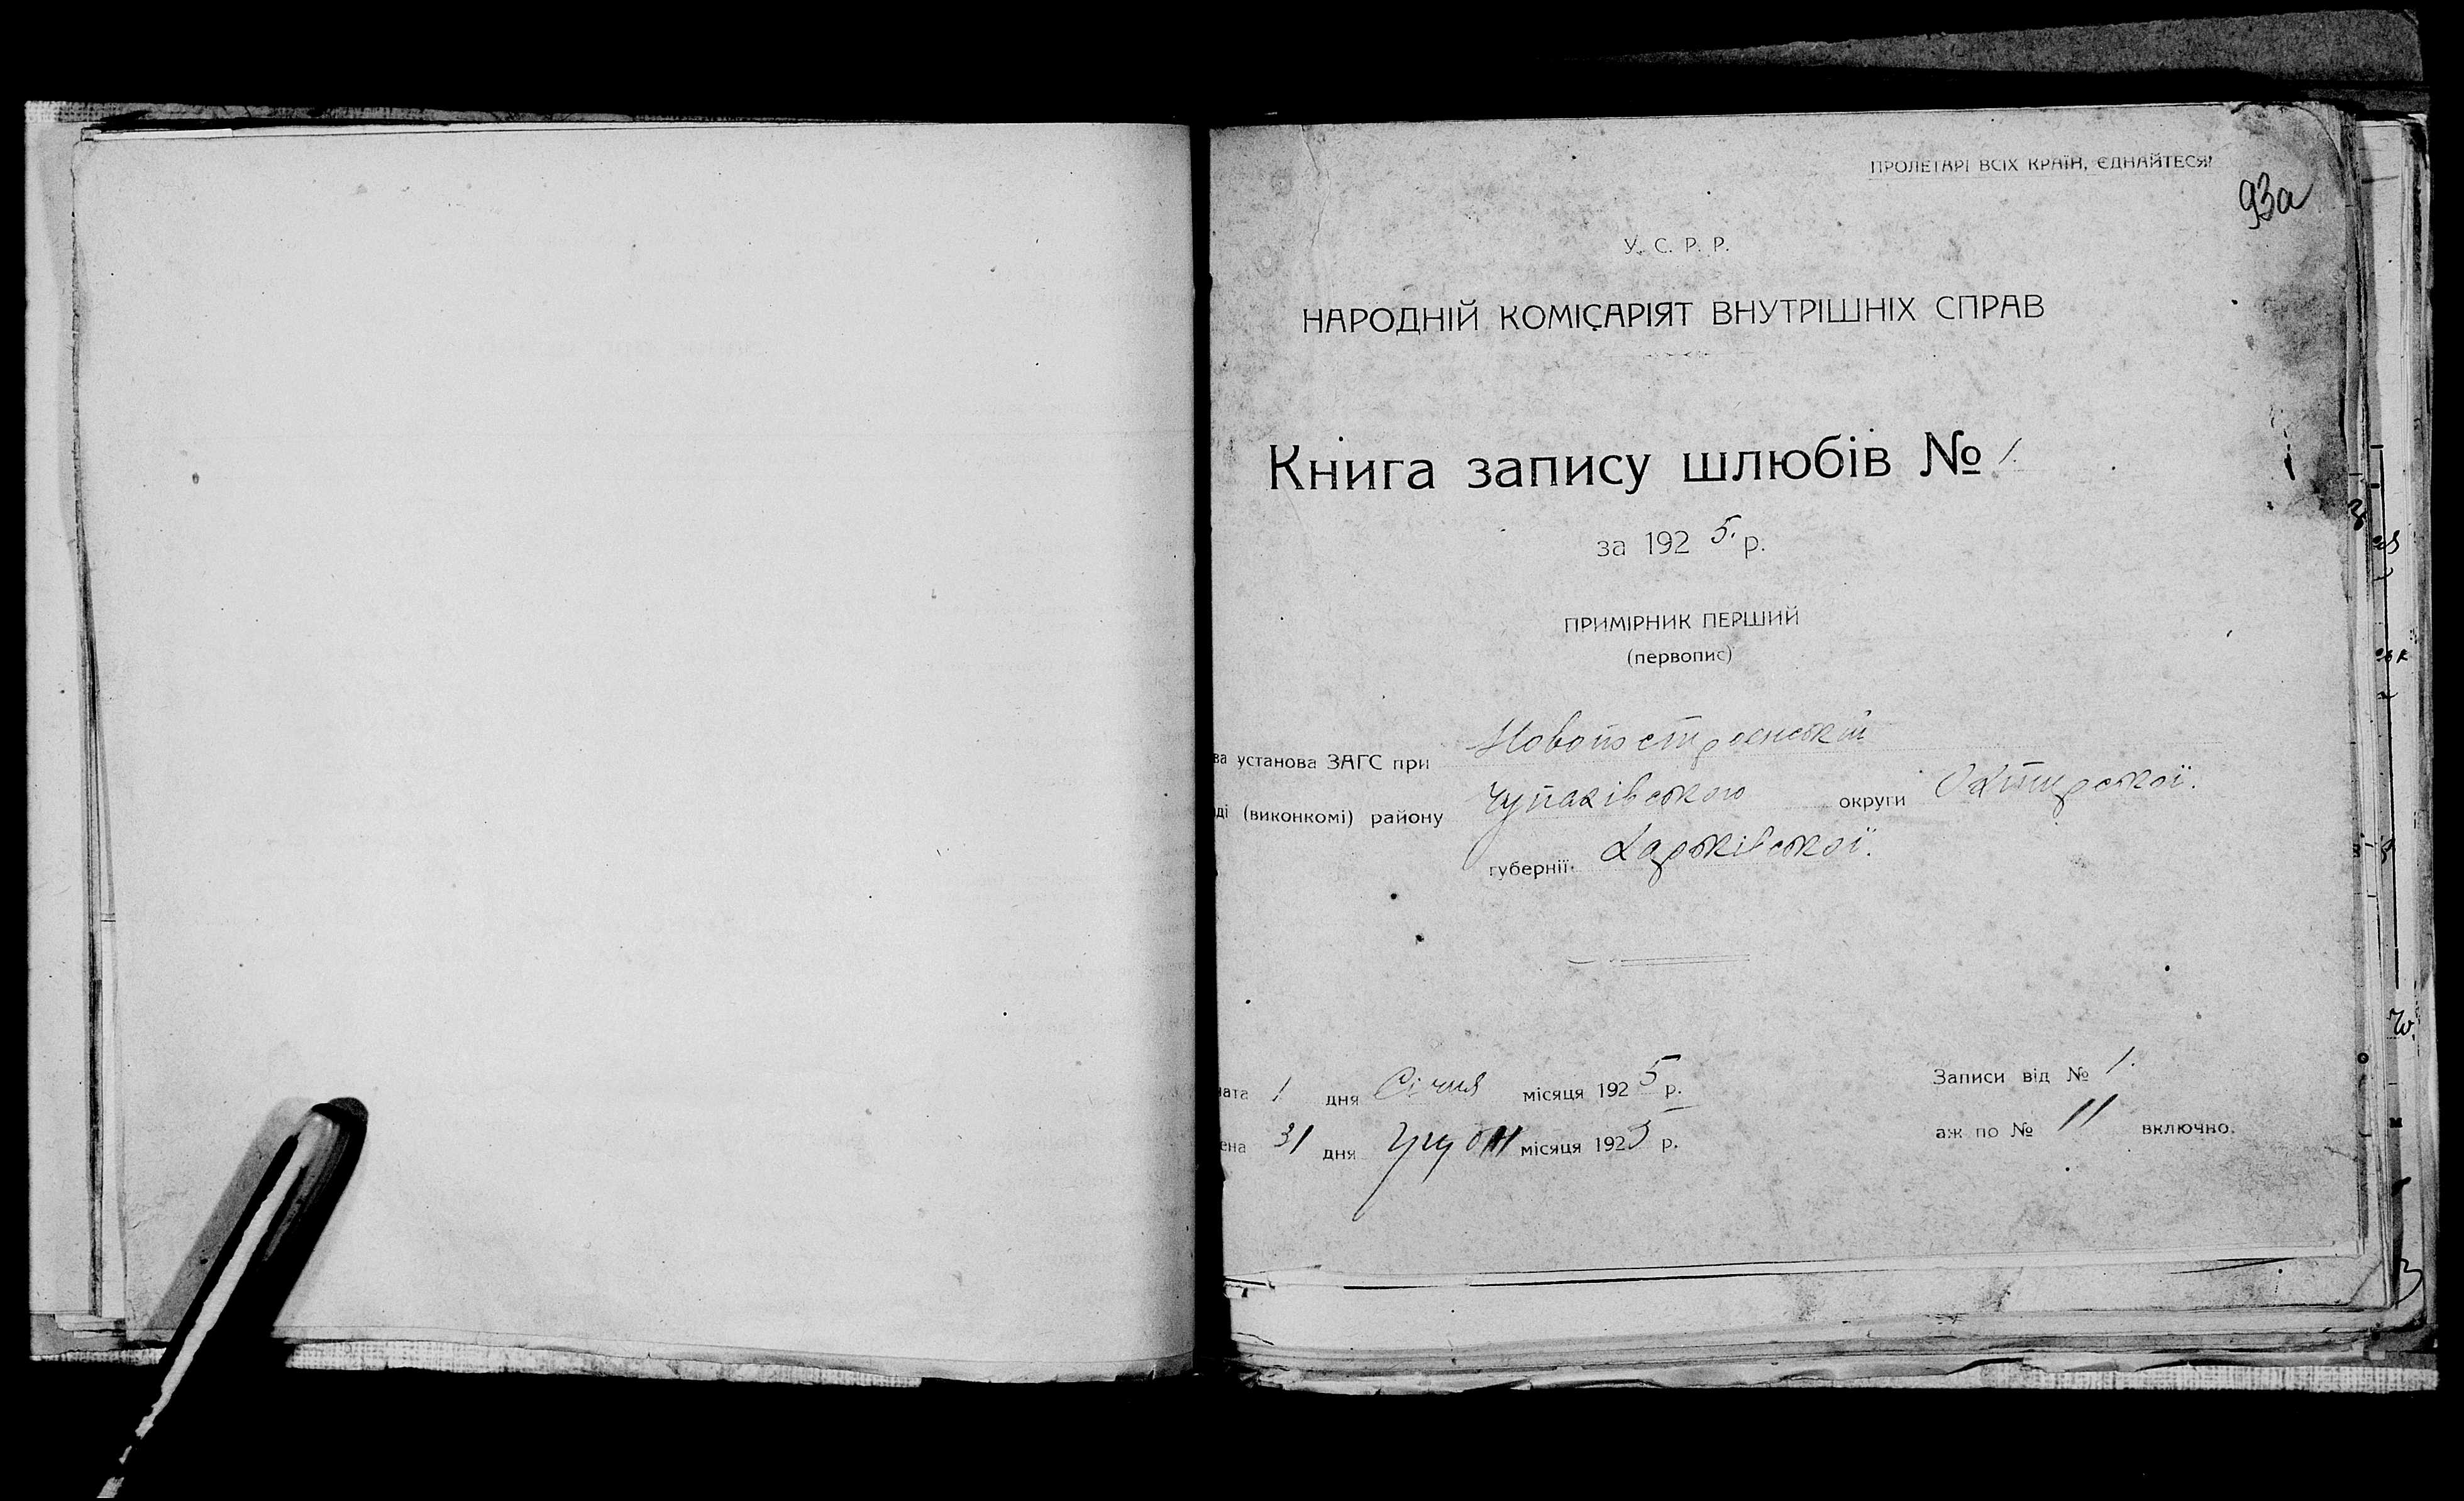 ПРОЛЕТАРІ ВСІХ КРАЇН, ЄДНАЙТЕСЯ!
93а
У. С. Р. Р.
НАРОДНІЙ КОМІСАРІЯТ ВНУТРІШНІХ СПРАВ
Книга запису шлюбів № 1.
за 1925. р.
ПРИМІРНИК ПЕРШИЙ
(первопис)
ва установа ЗАГС при Новопостроенській
ді (виконкомі) району Чупахівського округи Охтирської.
губернії Харківської.
ата 1 дня Січня місяця 1925 р.
Записи від № 1.
ена 31 дня Грудня місяця 1925 р.
аж по № 11 включно.